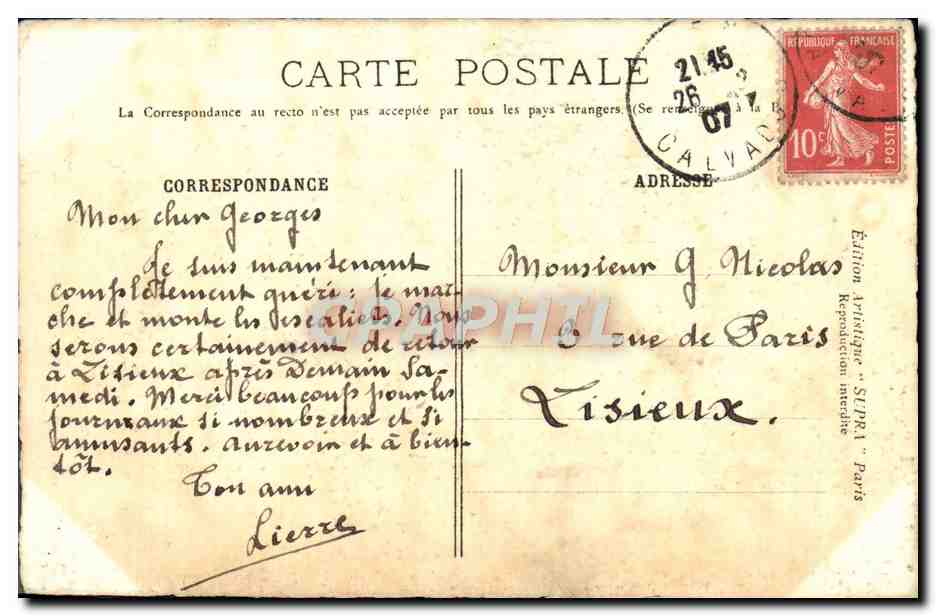 CARTE POSTALE
La Correspondance au recto n'est pas acceptée par tous les pays étrangers. (Se à la
CORRESPONDANCE
Mon cher Georges
Je suis maintenant
complètement guéri: je mar-
che et monte les escaliers. Nous
serons certainement de retour
à Lisieux après Demain Sa-
medi. Merci beaucoup pour les
journaux si nombreux et si
amusants. Au revoir et à bien-
tôt.
Ton ami
Pierre
ADRESSE
Monsieur G. Nicolas
rue de Paris
Lisieux.
21.45
26
07
CALVADOS
REPUBLIQUE FRANÇAISE
10c
POSTES
Edition Artistique "SUPRA" Paris
Reproduction interdite
CPAPHIL